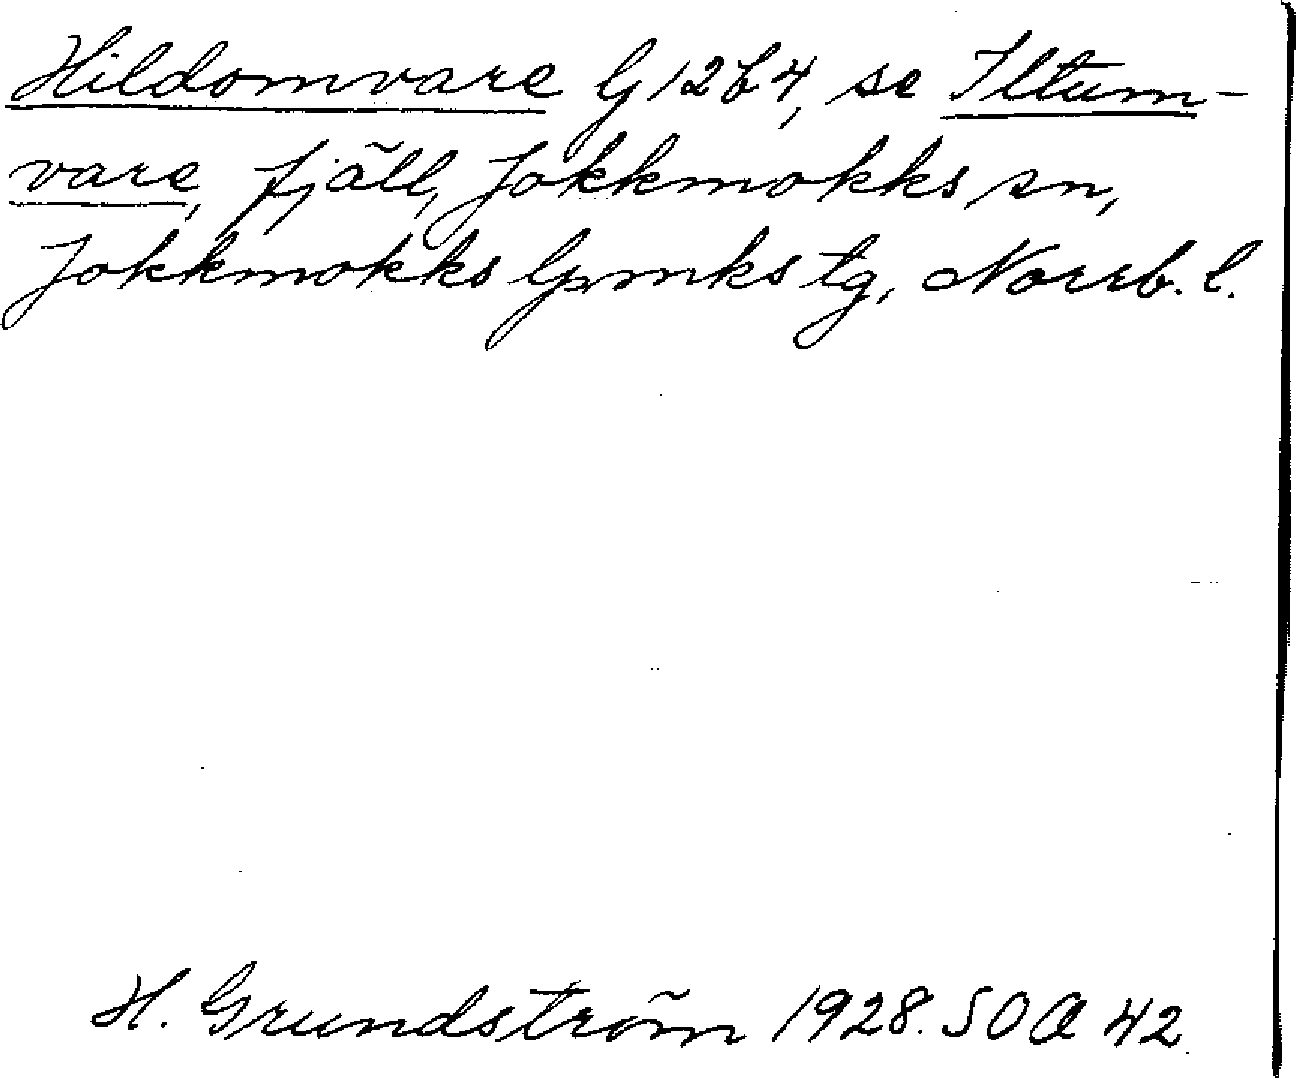 Hildomvare G12b4, se Iltum-
vare, fjäll, Jokkmokks sn,
Jokkmokks lpmks tg, Norrb. l.
H. Grundström 1928. SOA 42.